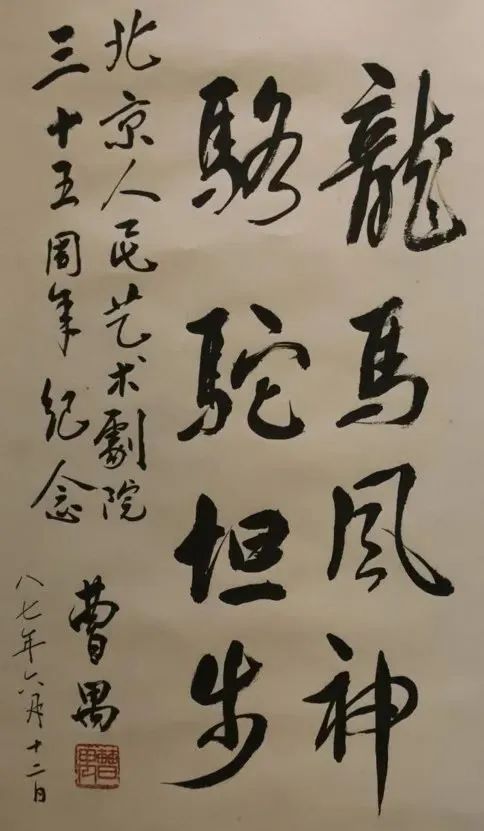 龍馬風神
駱駝坦步
北京人民艺术劇院
三十五周年纪念
曹禺
八七年六月十二日